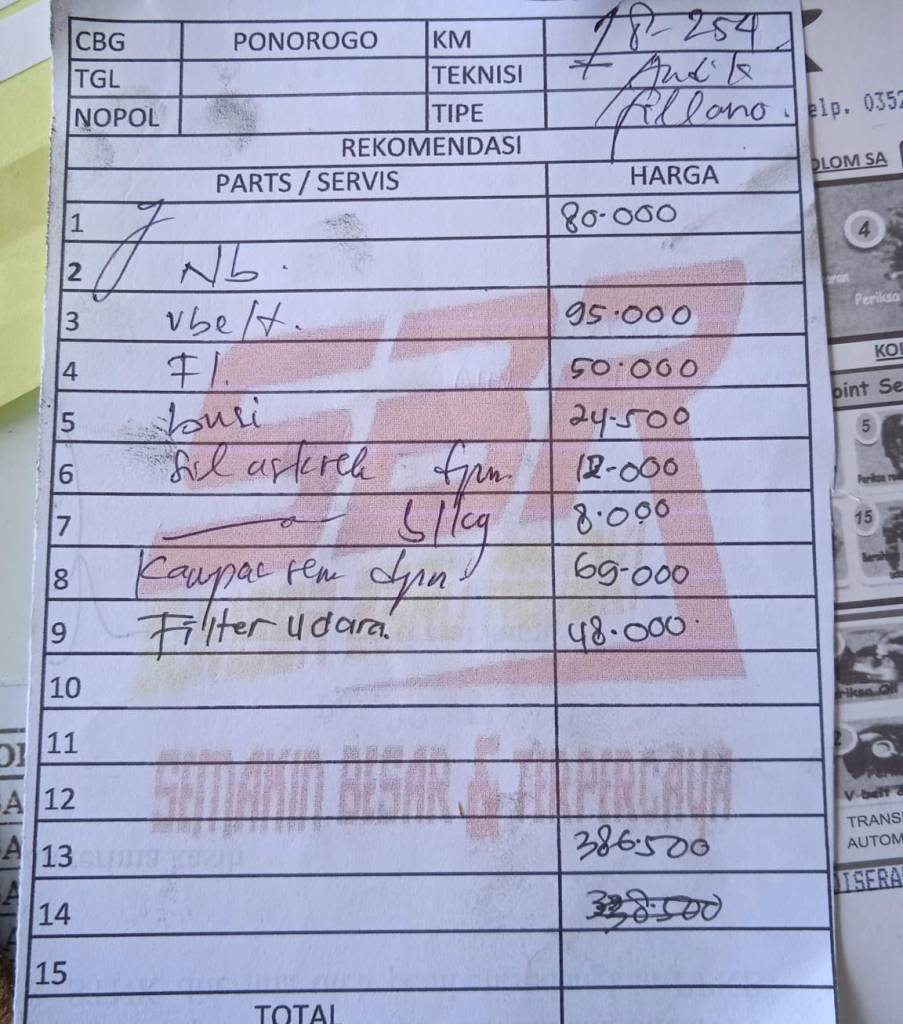 CBG PONOROGO KM 78-254
TGL TEKNISI Andik
NOPOL TIPE fillano.
REKOMENDASI
PARTS / SERVIS HARGA
1 J 80.000
2 Nb.
3 vbelt. 95.000
4 Fl. 50.000
5 busi 24.500
6 Sil askrek dpn. 12.000
7 S/lkg 8.000
8 Kampas rem dpn 69.000
9 Filter udara. 48.000
10
11
12
13 386.500
14 338.500
15
TOTAL
SBR
SEMAKIN BESAR & TERPERCAYA
elp. 0352
OLOM SA
4
Periksa
KOL
oint Se
5
15
V-belt
TRANS
AUTOM
ISERA